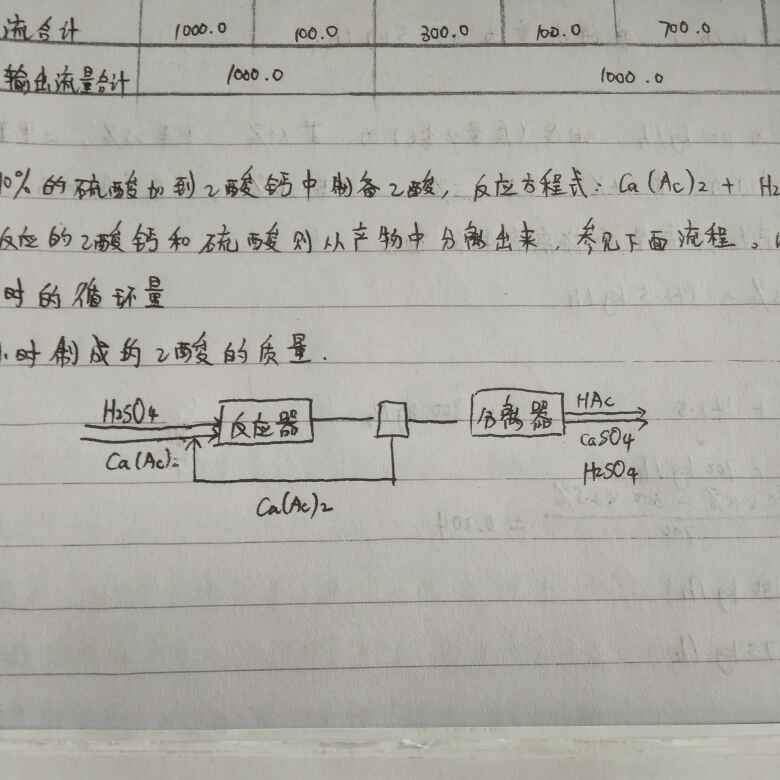 流合计 1000.0 100.0 300.0 100.0 700.0
输出流量合计 1000.0 1000.0
10%的硫酸加到乙酸钙中制备乙酸,反应方程式:Ca(Ac)2 + H2
反应的乙酸钙和硫酸则从产物中分离出来,参见下面流程。
时的循环量
时制成的乙酸的质量.
H2SO4 反应器 分离器 HAc
Ca(Ac)2 CaSO4
H2SO4
Ca(Ac)2